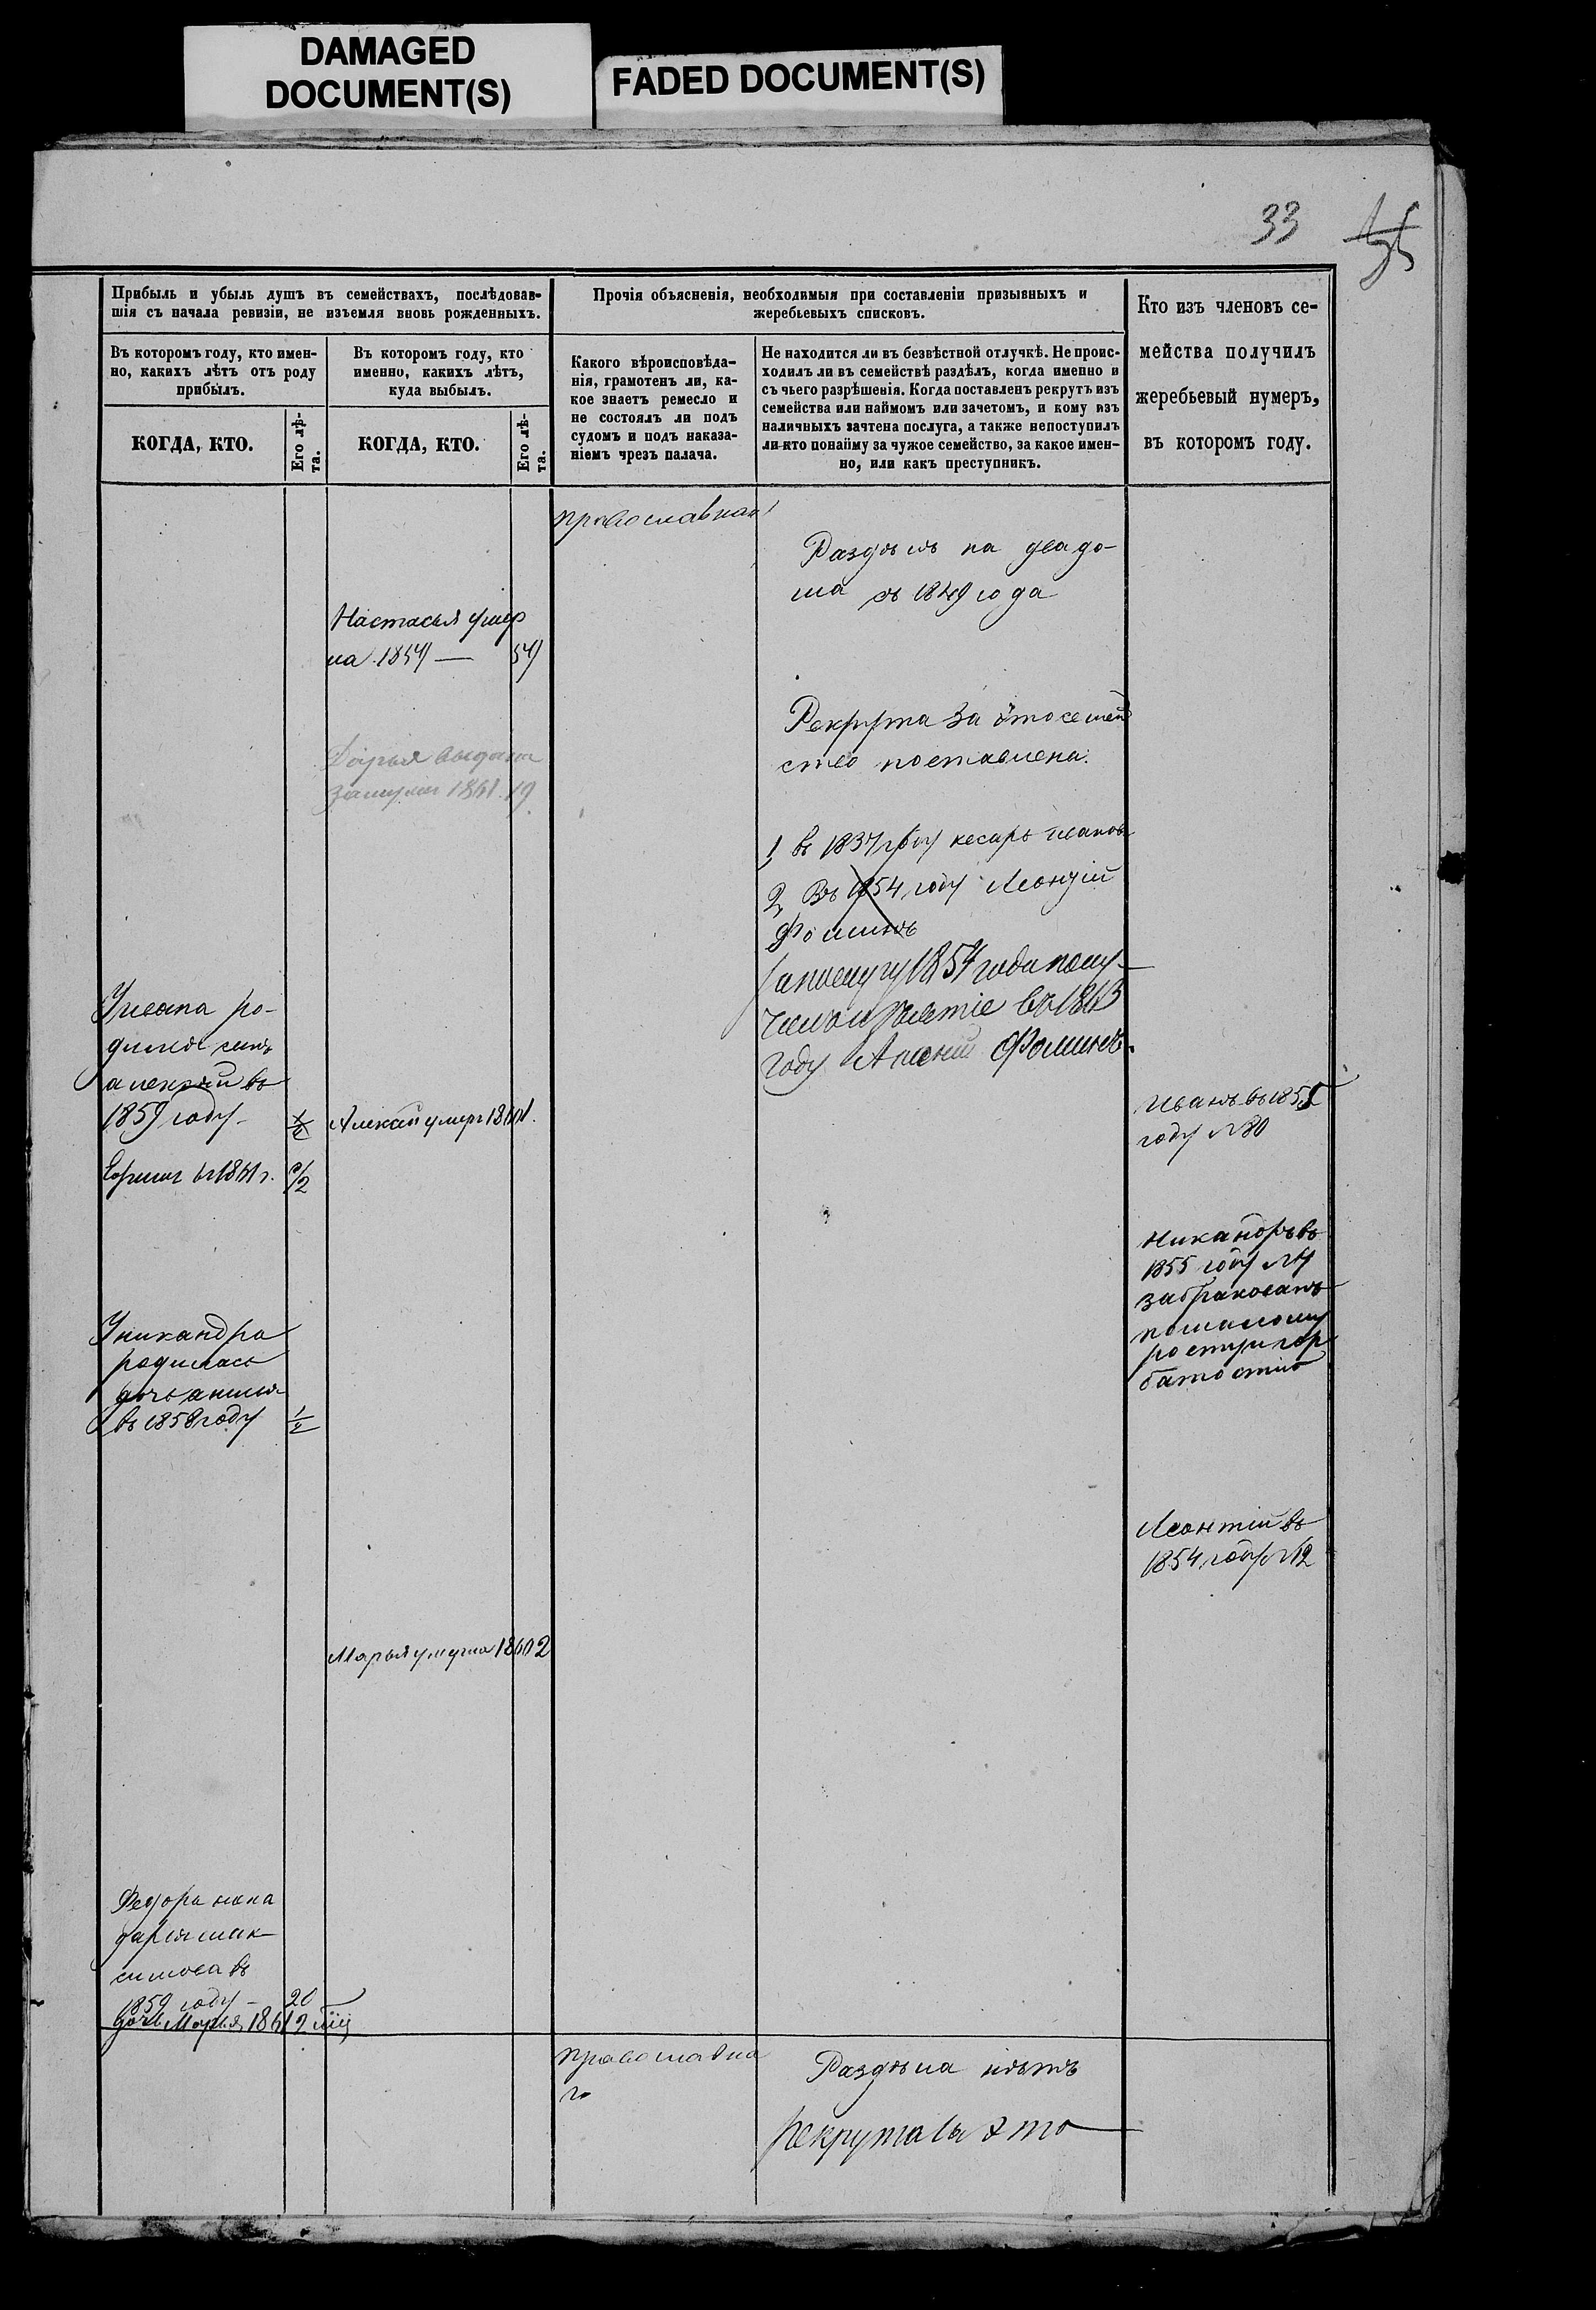 DAMAGED
DOCUMENT(S)
FADED DOCUMENT(S)
33
Прибыль и убыль душъ въ семействахъ, послѣдовав-
шія съ начала ревизіи, не изъемля вновь рожденныхъ.
Прочія объясненія, необходимыя при составленіи призывныхъ и
жеребьевыхъ списковъ.
Кто изъ членовъ се-
мейства получилъ
жеребьевый нумеръ,
въ которомъ году.
Въ которомъ году, кто имен-
но, какихъ лѣтъ отъ роду
прибылъ.
Въ которомъ году, кто
именно, какихъ лѣтъ,
куда выбылъ.
Какого вѣроисповѣда-
нія, грамотенъ ли, ка-
кое знаетъ ремесло и
не состоялъ ли подъ
судомъ и подъ наказа-
ніемъ чрезъ палача.
Не находится ли въ безвѣстной отлучкѣ. Не проис-
ходилъ ли въ семействѣ раздѣлъ, когда именно и
съ чьего разрѣшенія. Когда поставленъ рекрутъ изъ
семейства или наймомъ или зачетомъ, и кому изъ
наличныхъ зачтена послуга, а также непоступилъ
ли-кто понайму за чужое семейство, за какое имен-
но, или какъ преступникъ.
КОГДА, КТО.
Его лѣ-
та.
КОГДА, КТО.
Его лѣ-
та.
православная
Раздѣлъ на два до-
ма съ 1849 года
Настасья умер
ла 1857 — 57
Рекрута за это семей
ство поставлена:
Дарья выдана
замужъ 1861. 19
1, въ 1837 году кесарь иванов
2, Въ 1854 году Леонтій
Фоминъ
1854 года
въ 1863
году Фоминъ.
У ивана ро-
дился сынъ
алексѣй въ
1859 году 1/2
Алексѣй умеръ 1860 1.
Иванъ въ 1855
году №80
въ 1861 г.
Никандръ въ
1855 году №
забракованъ
помалому
росту и гор
батостію
У никандра
родилась
дочь
въ 1858 году 1/2
Леонтій въ
1854 году №12
Марья умерла 1860 2
Федора жена
дарья мак-
симова въ
1859 году — 20
дочь Марья 1861 2
православна
го
Раздѣла нѣтъ
рекрута за это